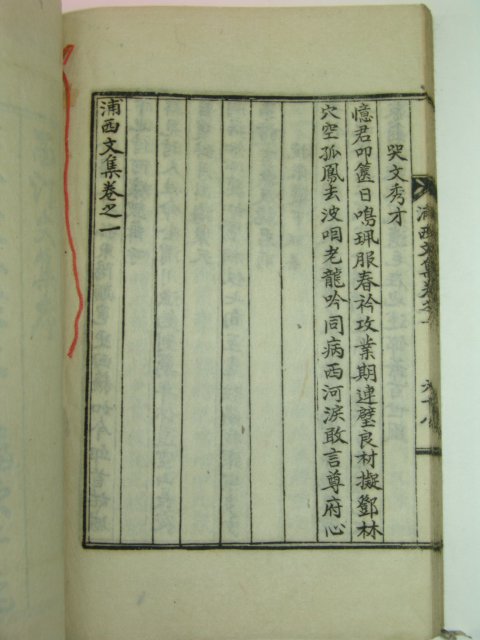 哭文秀才
憶君叩篋日鳴珮服春衿攻業期連璧良材擬鄧林
穴空孤鳳去波咽老龍吟同病西河淚敢言尊府心
浦西文集卷之一
浦西文集卷之一